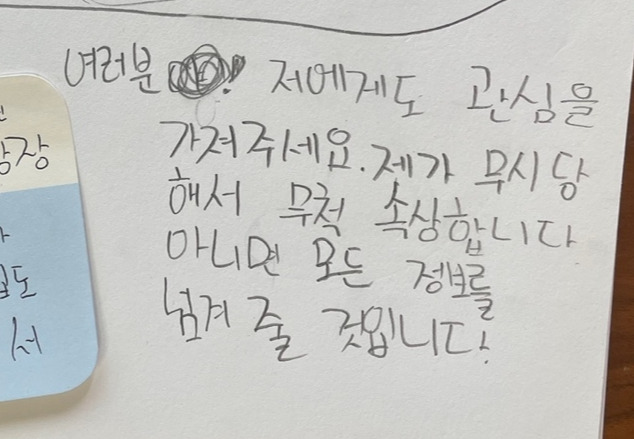 여러분! 저에게도 관심을
가져주세요. 제가 무시당
해서 무척 속상합니다
아니면 모든 정보를
넘겨 줄 것입니다!
장
도
서